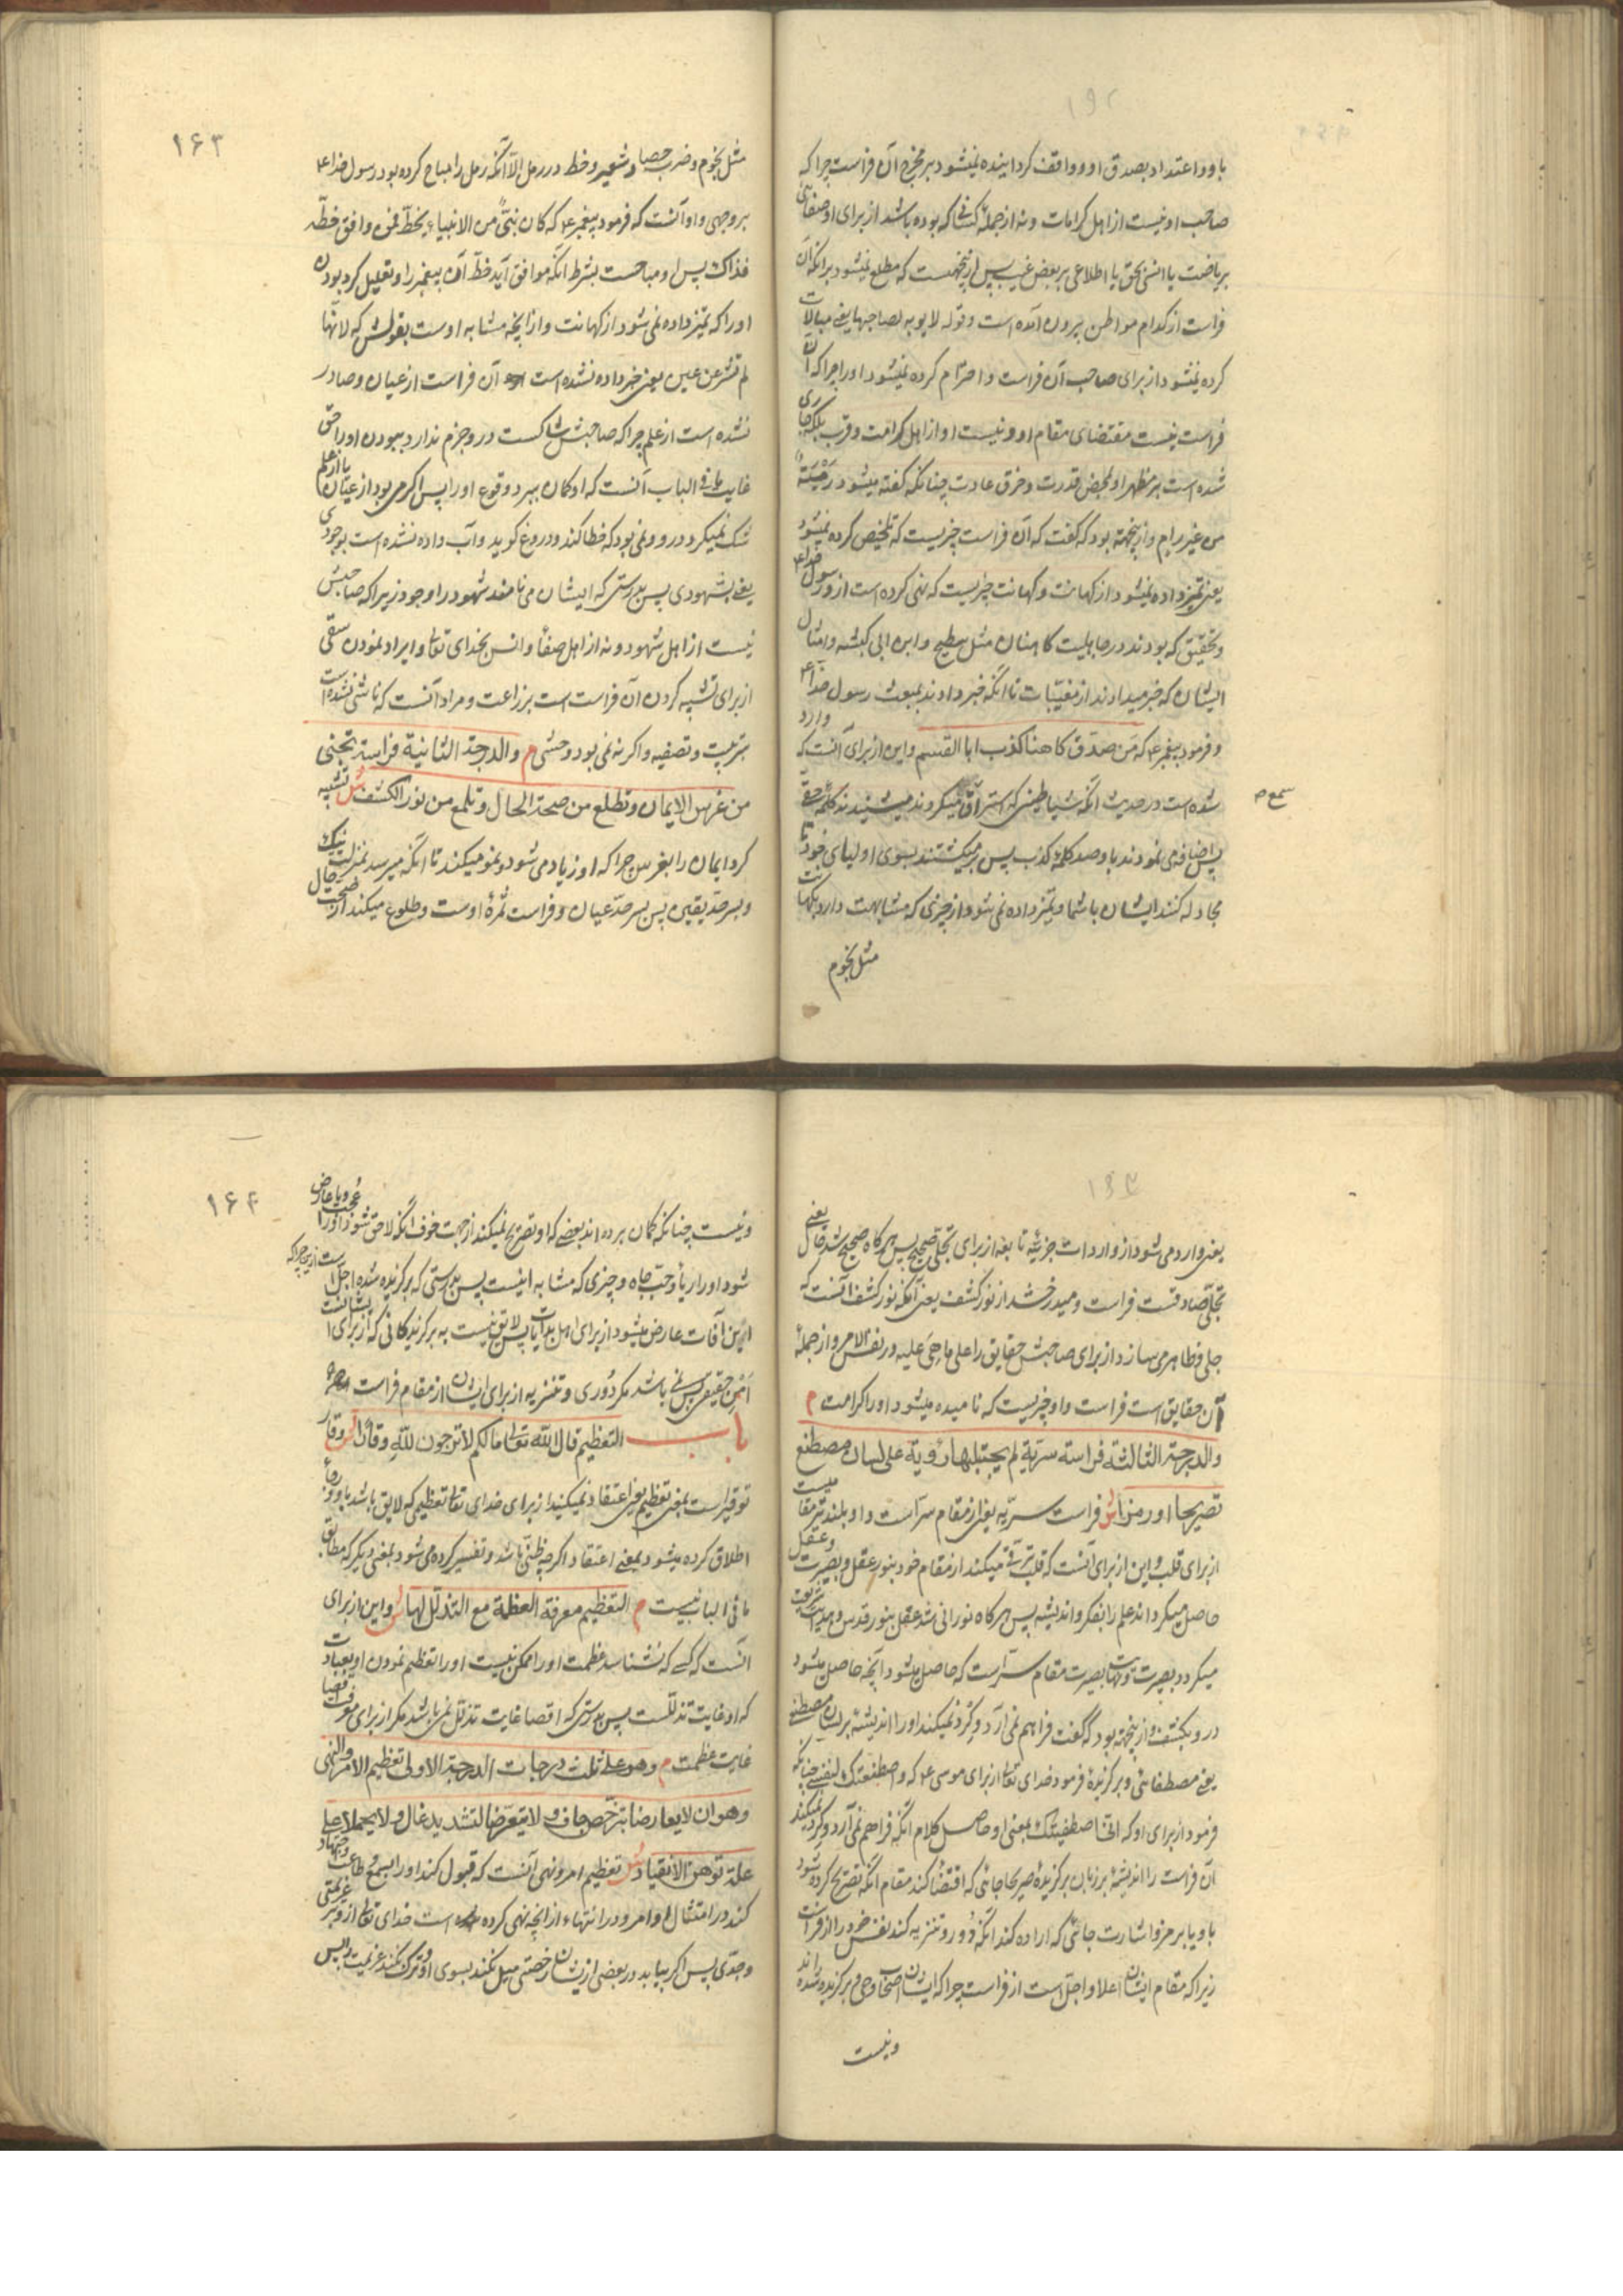 باو و اعتداد بصدق او و واقف گردانیده نمیشود بر مخرج آن فراست چرا که
صاحب او نیست از اهل کرامات و نه از جمله کسانی که بوده باشد از برای او صفائی
بریاضت یا انسی بحق یا اطلاعی بر بعض غیب پس ازینجهتست که مطلع نمیشود برانکه آن
فراست از کدام مواطن بیرون آمده است و قوله لا یوبه لصاحبها یعنی مبالات
کرده نمیشود از برای صاحب آن فراست و احترام کرده نمیشود او را چرا که آن
فراست نیست مقتضای مقام او و نیست او از اهل کرامت و قرب بلکه جاری
شده است بر مظهر او بمحض قدرت و خرق عادت چنانکه گفته میشود رمیة
من غیر رام و ازینجهته بود که گفت که آن فراست چیزیست که تلخیص کرده نمیشود
یعنی تمیز داده نمیشود از کهانت و کهانت چیزیست که نهی کرده است ازو رسول خدا ع
و تحقیق که بودند در جاهلیت کاهنان مثل سطیح و ابن ابی کبشه و امثال
ایشان که خبر میدادند از مغیبات تا انکه خبر دادند بمبعث رسول خدا ع
و فرمود پیغمبر ع که من صدق کاهنا کذب ابا القسم و این از برای آنست که وارد
شده است در حدیث انکه شیاطینی که استراق میکردند میشنیدند کلمه حق
سمع ص
پس اضافه می نمودند باو صد کلمه کذب پس بر میگشتند بسوی اولیای خود تا
مجادله کنند ایشان باشما و تمیز داده نمی شود از چیزی که مشابهت دارد بکهانت
مثل نجوم
۱۶۳
مثل نجوم و ضرب حصا و شعیر و خط در رمل الا آنکه رمل را مباح کرده بود رسول خدا ع
بر وجهی و او آنست که فرمود پیغمبر ع که کان نبی من الانبیاء یخط فمن وافق خطه
فذاک پس او مباحست بشرط انکه موافق آید خط آن پیغمبر را و تعلیل کرد بودن
او را که تمیز داده نمی شود از کهانت و از انچه مشابه اوست بقولش که لانها
لم تشر عن عین یعنی خبر داده نشده است آن فراست از عیان و صادر
نشده است از علم چرا که صاحبش شاکست درو جزم ندارد ببودن او را حق
غایت ما فی الباب آنست که او گمان ببرد وقوع او را پس اگر می بود از عیان یا از علم
شک نمیکرد درو و نمی بود که خطا کند و دروغ گوید و آب داده نشده است بوجودی
یعنی بشهودی پس بدرستی که ایشان می نامند شهود را وجود زیرا که صاحبش
نیست از اهل شهود و نه از اهل صفا و انس بخدای تعالی و ایراد نمودن سقی
از برای تشبیه کردن آن فراست است بزراعت و مراد آنست که ناشی نشده است
بتربیت و تصفیه و اگر نه نمی بود وحشی م والدرجة الثانیة فراسة تجنی
من غرس الایمان و تطلع من صحة الحال و تلمع من نور الکشف ش تشبیه
کرد ایمان را بغرس چرا که او زیاد می شود و نمو میکند تا انکه میرسد بمنزلت نیک
و بسر حد یقین پس بسر حد عیان و فراست ثمره اوست و طلوع میکند از صحت حال
یعنی وارد می شود از واردات جزئیه تابعه از برای تجلی صحیح پس هرگاه صحیح شد حال یعنی
تجلی صادقست فراست و میدرخشد از نور کشف یعنی آنکه نور کشف آنست که
جلی و ظاهر می سازد از برای صاحبش حقایق را علی ما هی علیه در نفس الامر و از جمله
آن حقایق است فراست و او چیزیست که نامیده میشود او را کرامت م
والدرجة الثالثة فراسة سریة لم یجتلبها رؤیة علی لسان مصطنع
تصریحا او رمزا ش فراست سریه یعنی از مقام سر است و او بلندتر مقامیست
از برای قلب و این از برای آنست که قلب ترقی میکند از مقام خود بنور عقل و بصیرت و عقل
حاصل میگرداند علم را بفکر و اندیشه پس هرگاه نورانی شد عقل بنور قدس و هدایت
میگردد بصیرت و نهایت بصیرت مقام سر است که حاصل میشود انچه حاصل میشود
درو بکشف و ازینجهته بود که گفت فراهم نمی آرد و گرد نمیکند او را اندیشه بر لسان مصطنع
یعنی مصطفائی و برگزیده فرمود خدای تعالی از برای موسی ع که و اصطنعتک لنفسی چنانکه
فرمود از برای او که انی اصطفیتک بمعنی او حاصل کلام انکه فراهم نمی آرد و گرد نمیکند
آن فراست را اندیشه بر زبان برگزیده صریحا جائی که اقتضا کند مقام انکه تصریح کرده شود
باو یا برمز و اشارت جائی که اراده کند انکه دور و تنزیه کند نفس خود را از فراست
زیرا که مقام ایشان اعلا و اجل است از فراست چرا که ایشان اصحاب وحی و برگزیده شده اند
و نیست
۱۶۴
و نیست چنانکه گمان برده اند بعضی که او تصریح نمیکند از جهت خوف انکه لاحق شود او را عجب و یا عارض
شود او را ریا و حب جاه و چیزی که مشابه اینست پس بدرستی که برگزیده شده اجل است ازین چرا که
این آفات عارض میشود از برای اهل بدایات پس لایق نیست به برگزیدگانی که از برای ایشانست
امن حقیقی پس نمی باشد مگر دوری و تنزیه از برای ایشان از مقام فراست
باب التعظیم قال الله تعالی ما لکم لا ترجون لله وقارا ش وقار
توقیر است بمعنی تعظیم یعنی اعتقاد نمیکنید از برای خدای تعالی تعظیمی که لایق باشد باو و رجا
اطلاق کرده میشود بمعنی اعتقاد اگرچه ظنی باشد و تفسیر کرده می شود بمعنی دیگر که مطابق
ما فی الباب نیست م التعظیم معرفة العظمة مع التذلل لها ش و این از برای
آنست که کسی که نشناسد عظمت او را ممکن نیست او را تعظیم نمودن او بعبادت
که او غایت تذللست پس بدرستی که اقصا غایت تذلل نمی باشد مگر از برای معرفت اقصا
غایت عظمت م و هو علی ثلث درجات الدرجة الاولی تعظیم الامر والنهی
و هو ان لا یعارضا بترخص جاف و لا یتعرضا لتشدید غال و لا یحملا علی
علة توهن الانقیاد ش تعظیم امر و نهی آنست که قبول کند او را بسمع طاعت و اجتهاد
کند در امتثال اوامر و در انتهاء از انچه نهی کرده است خدای تعالی ازو بر عزیمتی
و جدی پس اگر بیابد در بعضی ازیشان رخصتی میل نکند بسوی او و ترک نکند عزیمت را پس